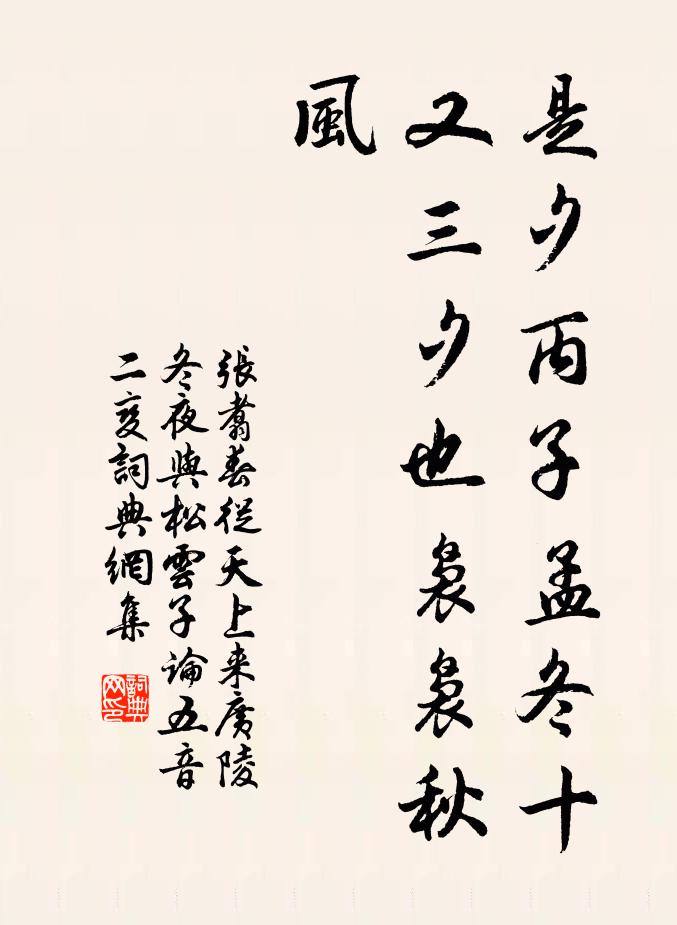 是夕丙子孟冬十
又三夕也裊裊秋
風
張翥春從天上来廣陵
冬夜與松雲子論五音
二變詞典網集
詞典网印